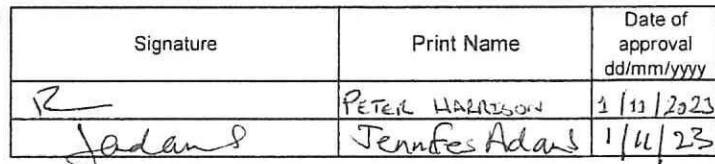 Signature Print Name Date of approval dd/mm/yyyy
PETER HARRISON 1/11/2023
Jadams Jennifer Adams 1/11/23